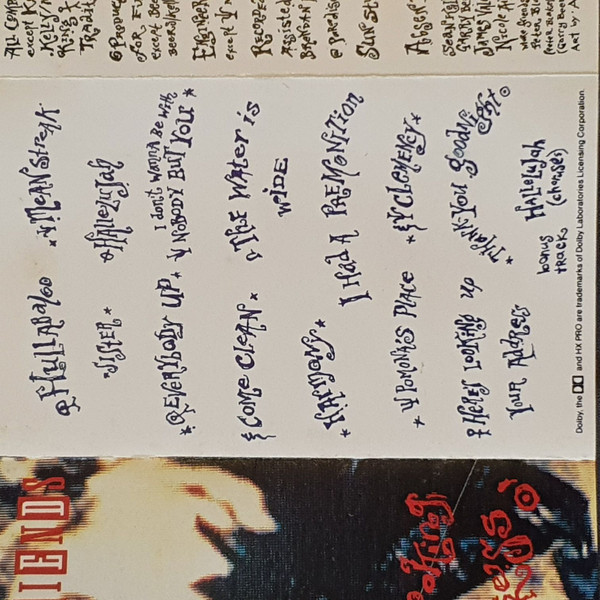 IENDS
eaking
ears
Hullabaloo
Sister
Everybody Up
Come Clean
Harmony
Pomona's Place
Here's Looking Up
Your Address
Mean Streak
Hallelujah
I don't wanna Be with
Nobody But You
The Water is
Wide
I Had A Premonition
Clemency
Thank You Goodnight
bonus
track
Hallelujah
(chorus)
Dolby, the DD and HX PRO are trademarks of Dolby Laboratories Licensing Corporation.
All Comp
except K
Tradit
Produc
for Ev
except Bee
Engineer
except
Recorde
Assisted
Brendan
@ paradis
Sunset
Absen
James
Nicole
Art by A